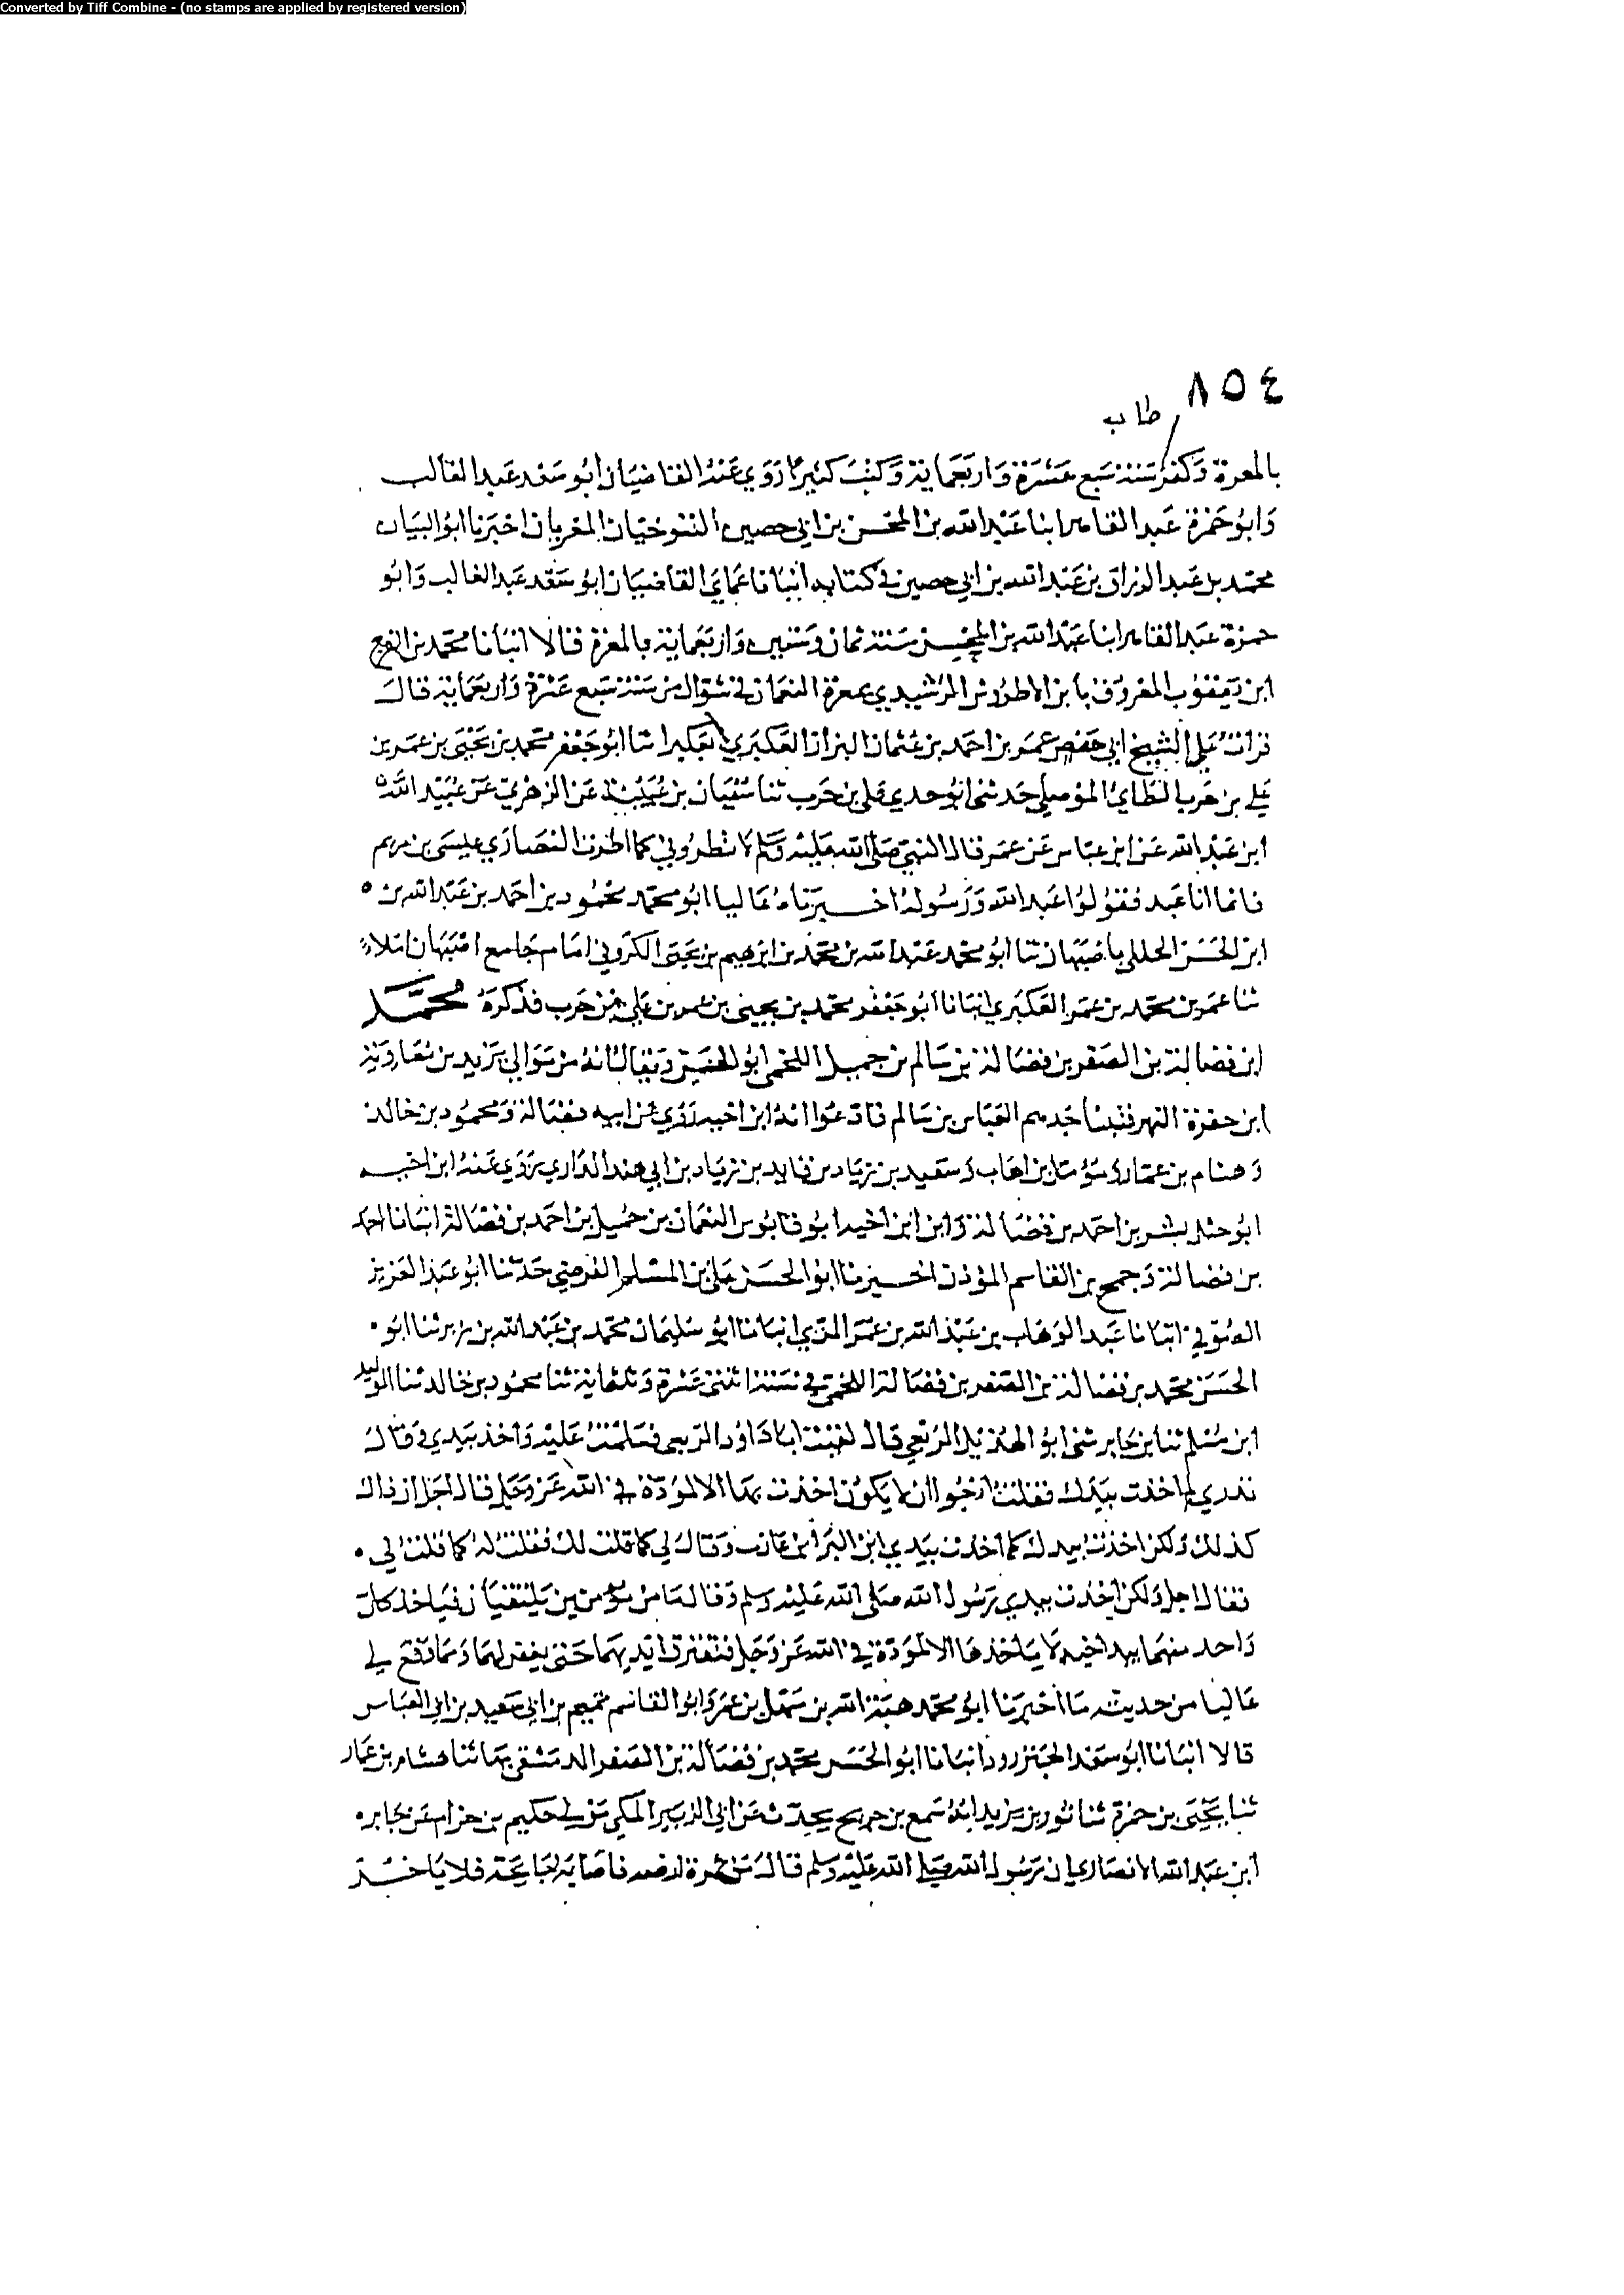 Converted by Tiff Combine - (no stamps are applied by registered version)
٨٥٤
طاب
بالمعرة وكفر سنة سبع عشرة واربعماية وكتب كثيرا روي عنه القاضيان ابو سعد عبد الغالب
وابو حمزة عبد القاهر ابنا عبد الله بن المحسن بن ابي حصين التنوخيان المعريان اخبرنا ابو البيان
محمد بن عبد الرزاق بن عبد الله بن ابي حصين في كتابه انبانا عماي القاضيان ابو سعد عبد الغالب وابو
حمزة عبد القاهر ابنا عبد الله بن المحسن سنة ثمان وستين واربعماية بالمعرة قالا انبانا محمد بن الفرج
ابن يعقوب المعروف بابن الاطروش الرشيدي بمعرة النعمان في شوال من سنة سبع عشرة واربعماية قال
قرات علي الشيخ ابي حفص عمر بن احمد بن عثمان البزاز العكبري بعكبرا ثنا ابو جعفر محمد بن يحيى بن عمر بن
علي بن حرب الطائي الموصلي حدثني ابو جدي علي بن حرب ثنا سفيان بن عيينة عن الزهري عن عبيد الله
ابن عبد الله عن ابن عباس عن عمر قال النبي صلى الله عليه وسلم لا تطروني كما اطرت النصاري عيسى بن مريم
فانما انا عبد فقولوا عبد الله ورسوله اخبرناه عاليا ابو محمد محمود بن احمد بن عبد الله بن
ابن الحسن الحللي باصبهان ثنا ابو محمد عبد الله بن محمد بن ابرهيم بن يحيى الكروني امام جامع اصبهان املاء
ثنا عمر بن محمد بن عمر العكبري انبانا ابو جعفر محمد بن يحيى بن عمر بن علي بن حرب فذكره محمد
ابن فضالة بن الصقر بن فضالة بن سالم بن جميل اللخمي ابو الحسن ويقال انه من موالي يزيد بن معاوية
ابن حفرة النهر فتبنا جدهم العباس بن سالم فادعوا انه ابن اخيه روي عن ابيه فضالة ومحمود بن خالد
وهشام بن عمار ومؤمل بن اهاب وسعيد بن زياد بن فايد بن زياد بن ابي هند الداري روي عنه ابن اخيه
ابو بشر بن احمد بن فضالة وابن ابن اخيه ابو قابوس النعمان بن جميل بن احمد بن فضالة انبانا احمد
بن فضالة وجمح بن القاسم المؤذن اخبرنا ابو الحسن علي بن المسلم الفرضي حدثنا ابو عبد العزيز
الصوفي انبانا عبد الوهاب بن عبد الله بن عمر المري انبانا ابو سليمان محمد بن عبد الله بن زبر ثنا ابو
الحسن محمد بن فضالة بن الصقر بن فضالة اللخمي في سنة اثنتي عشرة وثلثماية ثنا محمود بن خالد ثنا الوليد
ابن مسلم ثنا بن جابر ثني ابو الهذيل الربعي قال لقيت ابا داود الربعي فسلمت عليه واخذ بيدي وقال
تدري لم اخذت بيدك فقلت ارجوا ان لا يكون اخذت بها الا لمودة في الله عز وجل قال اجل ان ذاك
كذلك ولكن اخذت بيدك كما اخذت بيدي ابن البرا بن عازب وقال لي كما قلت لك فقلت له كما قلت لي
فقال اجل ولكن اخذت بيدي رسول الله صلى الله عليه وسلم وقال ما من مؤمنين يلتقيان فياخذ كل
واحد منهما بيد اخيه لا ياخذها الا لمودة في الله عز وجل فتفترق ايديهما حتى يغفر لهما ومما وقع لي
عاليا من حديثه ما اخبرنا ابو محمد هبة الله بن سهل بن عمر وابو القاسم تميم بن ابي سعيد بن ابي العباس
قالا انبانا ابو سعد الجنزرودي انبانا ابو الحسن محمد بن فضالة بن الصقر الدمشقي بها ثنا هشام بن عمار
ثنا يحيى بن حمزة ثنا ثور بن يزيد انه سمع بن جريج يحدث عن ابي الزبير المكي مولى حكيم بن حزام عن جابر
ابن عبد الله الانصاري ان رسول الله صلى الله عليه وسلم قال ثمرة فاصابته جايحة فلا ياخذ